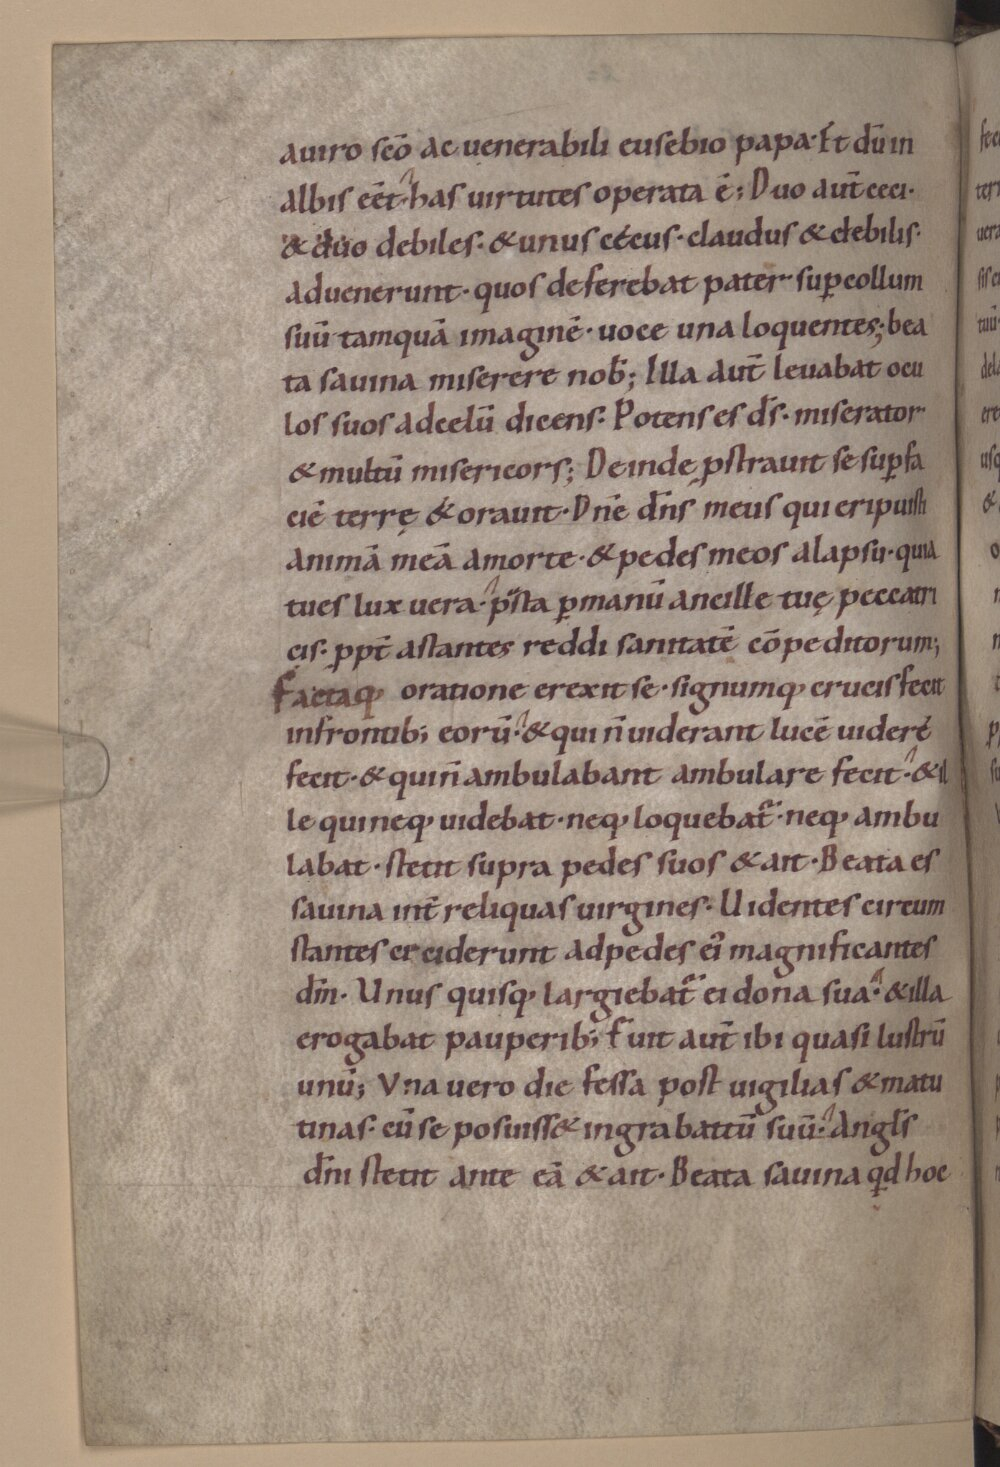 auiro sc̄o ac uenerabili eusebio papa· Et dū in
albis eēt· has uirtutes operata ē; Duo aut̄ ceci·
& duo debiles· & unus cęcus· claudus & debilis·
aduenerunt· quos deferebat pater sup̱ collum
suū tamquā imaginē· uoce una loquentes; bea
ta sauina miserere nob̄; Illa aut̄ leuabat ocu
los suos adcelū dicens· Potens es d̄s· miserator
& multū misericors; Deinde ꝓstrauit se sup̱ fa
ciē terrę & orauit· Dn̄e d̄ns meus qui eripuisti
animā meā amorte· & pedes meos alapsu· quia
tu es lux uera· p̄sta ꝑmanū ancille tuę peccatri
cis· ꝓpt̄ astantes reddi sanitatē cōpeditorum;
Factaq; oratione erexit se· signumq; crucis fecit
infrontib; eorū· & qui n̄ uiderant lucē uideré
fecit· & qui n̄ ambulabant ambulare fecit· & il
le qui neq; uidebat· neq; loquebat᷑· neq; ambu
labat· stetit supra pedes suos & ait· Beata es
sauina int̄ reliquas uirgines· Uidentes circum
stantes ceciderunt adpedes ei᷒ magnificantes
dm̄· Unus quisq; largiebat᷑ ei dona sua· & illa
erogabat pauperib; Fuit aut̄ ibi quasi lustrū
unū; Una uero die fessa post uigilias & matu
tinas· cū se posuiss& ingrabattū suū· Angl̄s
dn̄i stetit ante eā & ait· Beata sauina qđ hoc